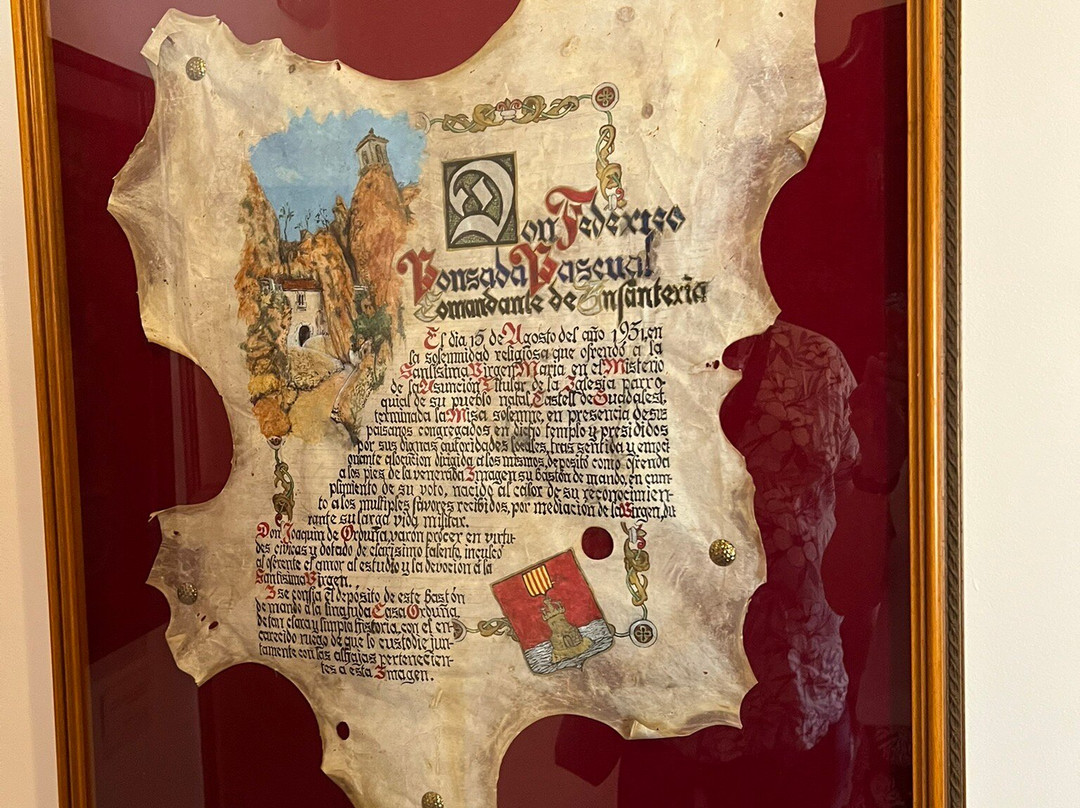 Don Federico
Ponsada Pascual
Comandante de Infantería
El día 15 de Agosto del año 1951, en
la solemnidad religiosa que ofrendó a la
Santísima Virgen María en el Misterio
de la Asunción Titular de la Iglesia parro-
quial de su pueblo natal Castell de Guadalest,
terminada la Misa solemne, en presencia de sus
paisanos congregados en dicho templo y presididos
por sus dignas autoridades locales, tras sentida y emoci-
onante alocución dirigida a los mismos, depositó como ofrenda
a los pies de la venerada Imagen su bastón de mando, en cum-
plimiento de su voto, nacido al calor de su reconocimien-
to a los multiples favores recibidos, por mediación de la Virgen, du
rante su larga vida militar.
Don Joaquín de Orduña, varón prócer en virtu-
des cívicas y dotado de clarísimo talento, inculcó
al oferente el amor al estudio y la devoción a la
Santísima Virgen.
Y se confía el depósito de este bastón
de mando a la linajuda Casa Orduña,
de tan clara y limpia historia, con el en-
carecido ruego de que lo custodie jun-
tamente con las alhajas pertenecien-
tes a esta Imagen.